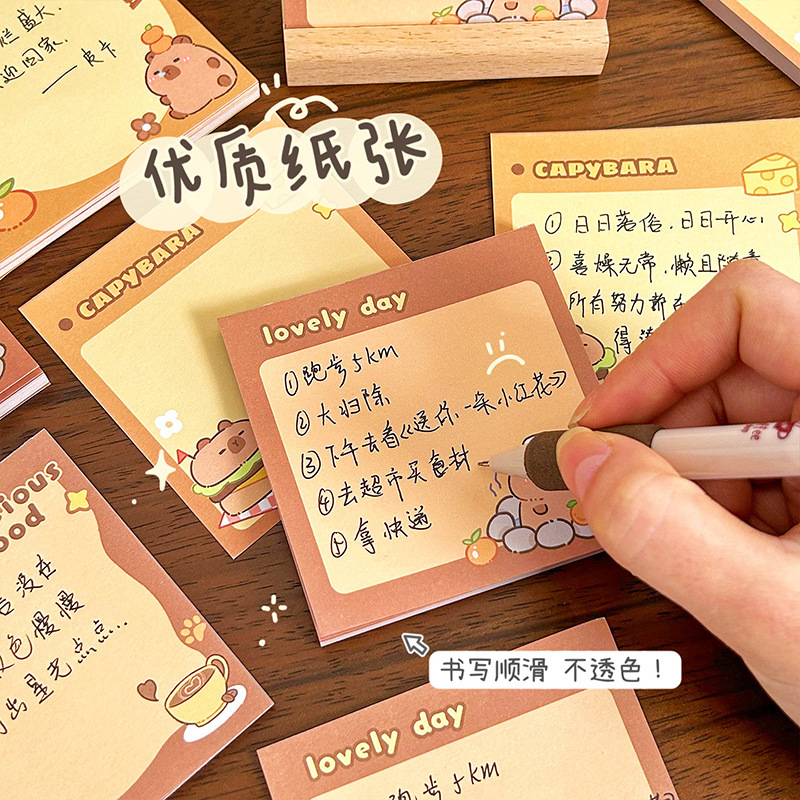 烂盛大,
迎回家.
—— 皮卡
优质纸张
CAPYBARA
① 日日落俗,日日开心,
喜燥无常,懒且随意
所有努力都在
得
CAPYBARA
lovely day
① 跑步5km
② 大扫除
③ 下午去看《送你一朵小红花》
④ 去超市买食材
⑤ 拿快递
ious
ood
没在
色慢慢
出星光点点...
书写顺滑 不透色！
lovely day
跑步5km